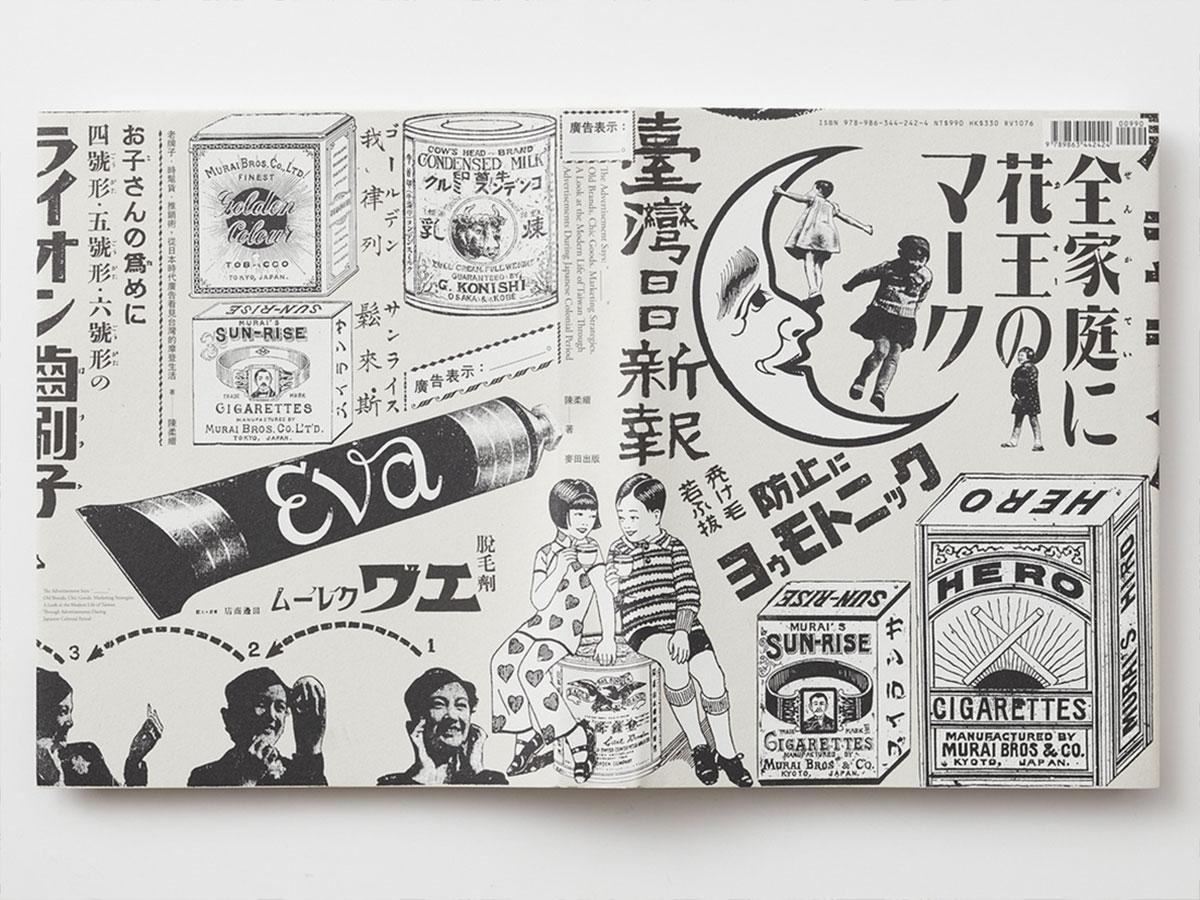 ISBN 978-986-344-242-4 NT$990 HK$330 RV1076
00990
9789863442424
全家庭に
花王の
マーク
臺灣日日新報
廣告表示：
The Advertisement Says:
Old Brands, Chic Goods, Marketing Strategies.
A Look at the Modern Life of Taiwan Through
Advertisements During Japanese Colonial Period
陳柔縉
著
麥田出版
COW'S HEAD BRAND
CONDENSED MILK
印首牛
クルミスンデンコ
乳 煉
FULL CREAM, FULL WEIGHT
GUARANTEED BY
G. KONISHI
OSAKA & KOBE
ゴールデン サンライス
我・律列 鬆來・斯
MURAI BROS. CO. LTD.
FINEST
Golden
Colour
TOBACCO
TOKYO, JAPAN.
SUN-RISE
MURAI'S
SUN-RISE
TRADE MARK
CIGARETTES
MANUFACTURED BY
MURAI BROS. CO. L'T'D.
TOKYO, JAPAN.
廣告表示：
老牌子、時髦貨、推銷術，從日本時代廣告看見台灣的摩登生活
著
陳柔縉
お子さんの爲めに
四號形・五號形・六號形の
ライオン齒刷子
Eva
脱毛劑
ムーレクヴエ
店商邊田
The Advertisement Says:
Old Brands, Chic Goods, Marketing Strategies
A Look at the Modern Life of Taiwan
Through Advertisements During
Japanese Colonial Period
3
2
1
禿け毛
若ふ拔
防止に
ヨウモトニック
SUN-RISE
MURAI'S
SUN-RISE
TRADE MARK
CIGARETTES
MANUFACTURED BY
MURAI BROS & CO.
KYOTO, JAPAN.
HERO
HERO
CIGARETTES
MANUFACTURED BY
MURAI BROS & CO.
KYOTO, JAPAN.
MURAI'S HERO